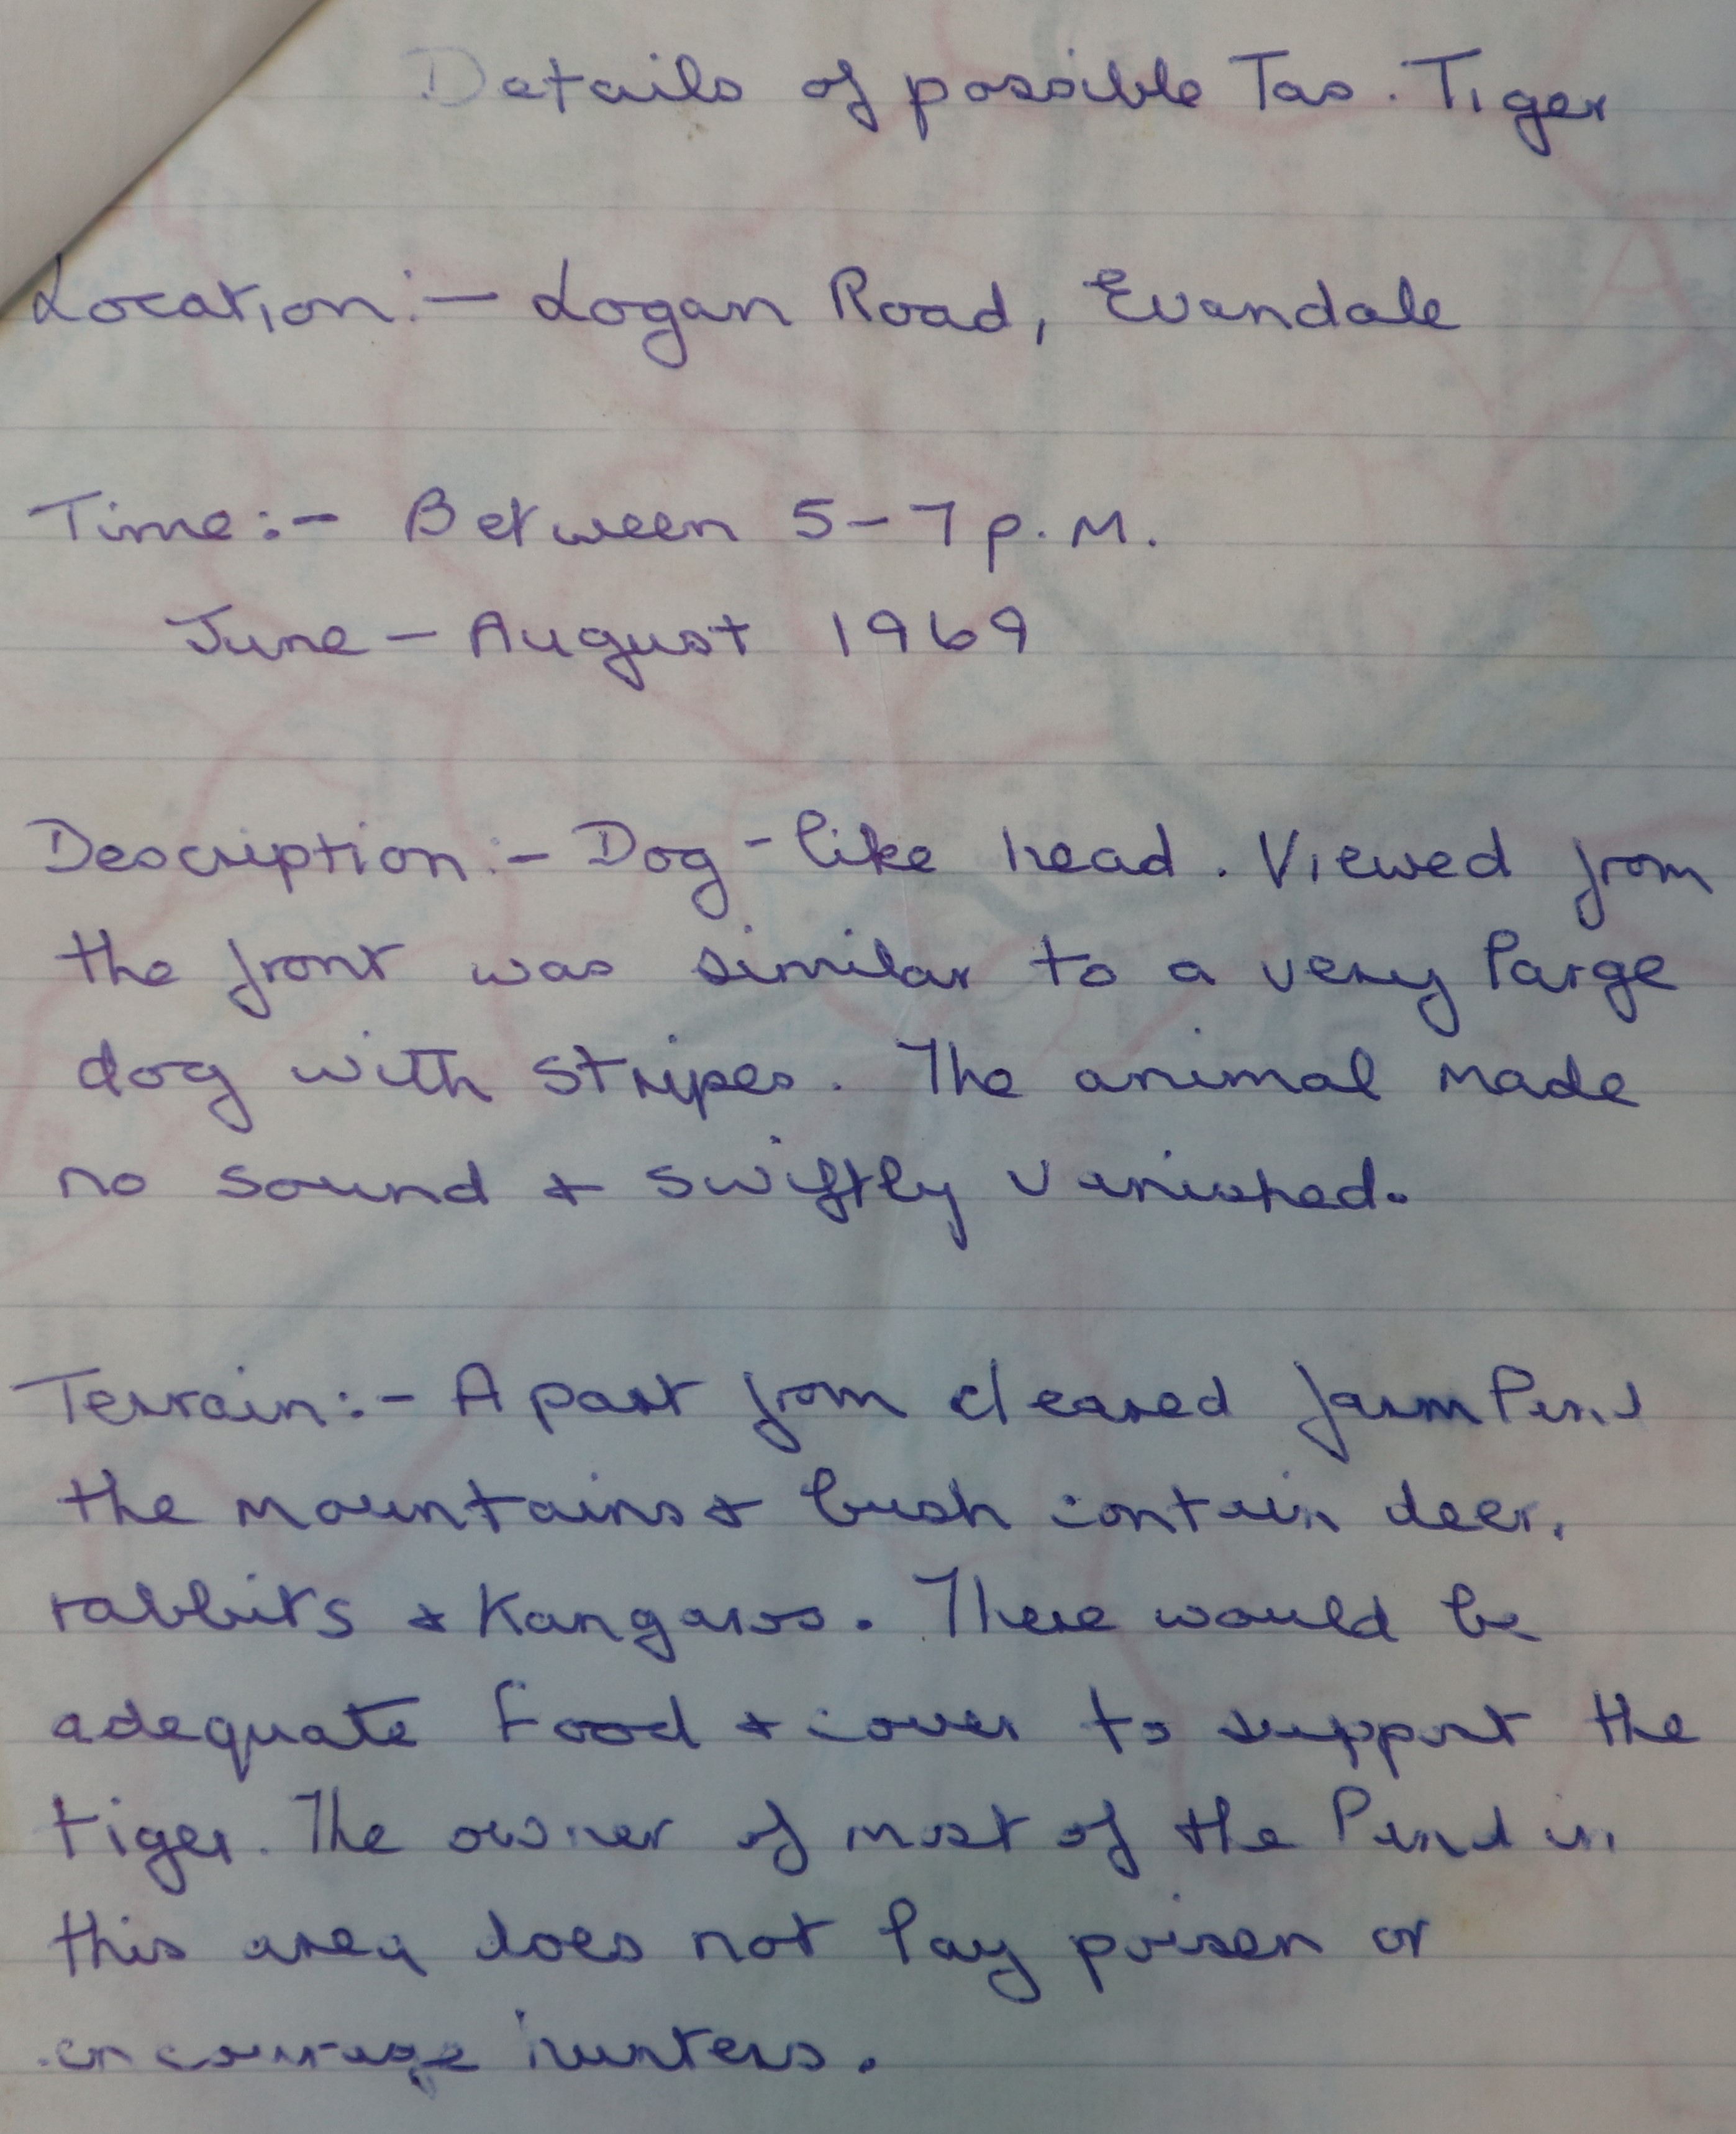 Details of possible Tas. Tiger
Location:- Logan Road, Evandale
Time:- Between 5-7 p.M.
June - August 1969
Description:- Dog-like head. Viewed from
the front was similar to a very large
dog with stripes. The animal made
no sound & swiftly vanished.
Terrain:- Apart from cleared farm land
the mountains & bush contain deer,
rabbits & Kangaroos. There would be
adequate food & cover to support the
tiger. The owner of most of the land in
this area does not lay poison or
encourage hunters.